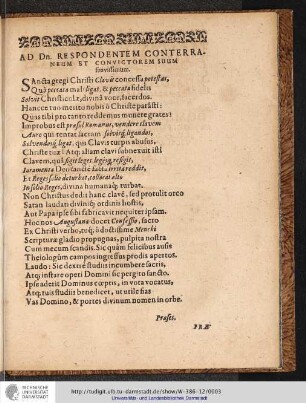 AD Dn. RESPONDENTEM CONTERRA-
NEUM ET CONVICTOREM SUUM
suavissimum.
SAncta gregi Christi Clavis concessa potestas,
Quâ peccata mali ligat, & peccata fidelis
Solvit Christicolæ, divinâ voce, sacerdos.
Hancce tuo merito nobis ô Christe parâsti:
Quas tibi pro tanto reddemus munere grates?
Improbus est præsul Romanus, vendere clavem
Auro qui tentat sacram solvitq́, ligandos,
Solvendosq́, ligat. quis Clavis turpis abusus,
Christe tuæ? Atq; aliam clavi subnectuit isti
Clavem, quâ figit leges legesq́, refigit,
Iuramenta Deo sanctè
Et Reges solio deturbat, collocat alto
In solio Reges, divina humanaq́; turbat.
Non Christus dedit hanc clavẽ, sed protulit orco
Satan laudati diviniq́; ordinis hostis,
Aut Papa ipse sibi fabricavit nequiter ipsam.
Hoc nos Augustanæ docet Confessio, sacro
Ex Christi verbo, teq́; ô doctissime Menthi
Scripturæ gladio propugnas, pulpita nostra
Cum mecum scandis. Sic quàm felicibus ausis
Theiologûm campos ingressus prodis apertos.
Laudo: Sic dextrè studiis incumbere sacris,
Atq́; instare operi Domini sic pergito sancto.
Ipse aderit Dominus cœptis, in vota vocatus,
Atq́; tuis studiis benedicet, ut utile fias
Vas Domino, & portes divinum nomen in orbe.
Præses.
PRÆ
TECHNISCHE
UNIVERSITÄT
DARMSTADT
http://tudigit.ulb.tu-darmstadt.de/show/W-386-12/0003
Universitäts- und Landesbibliothek Darmstadt